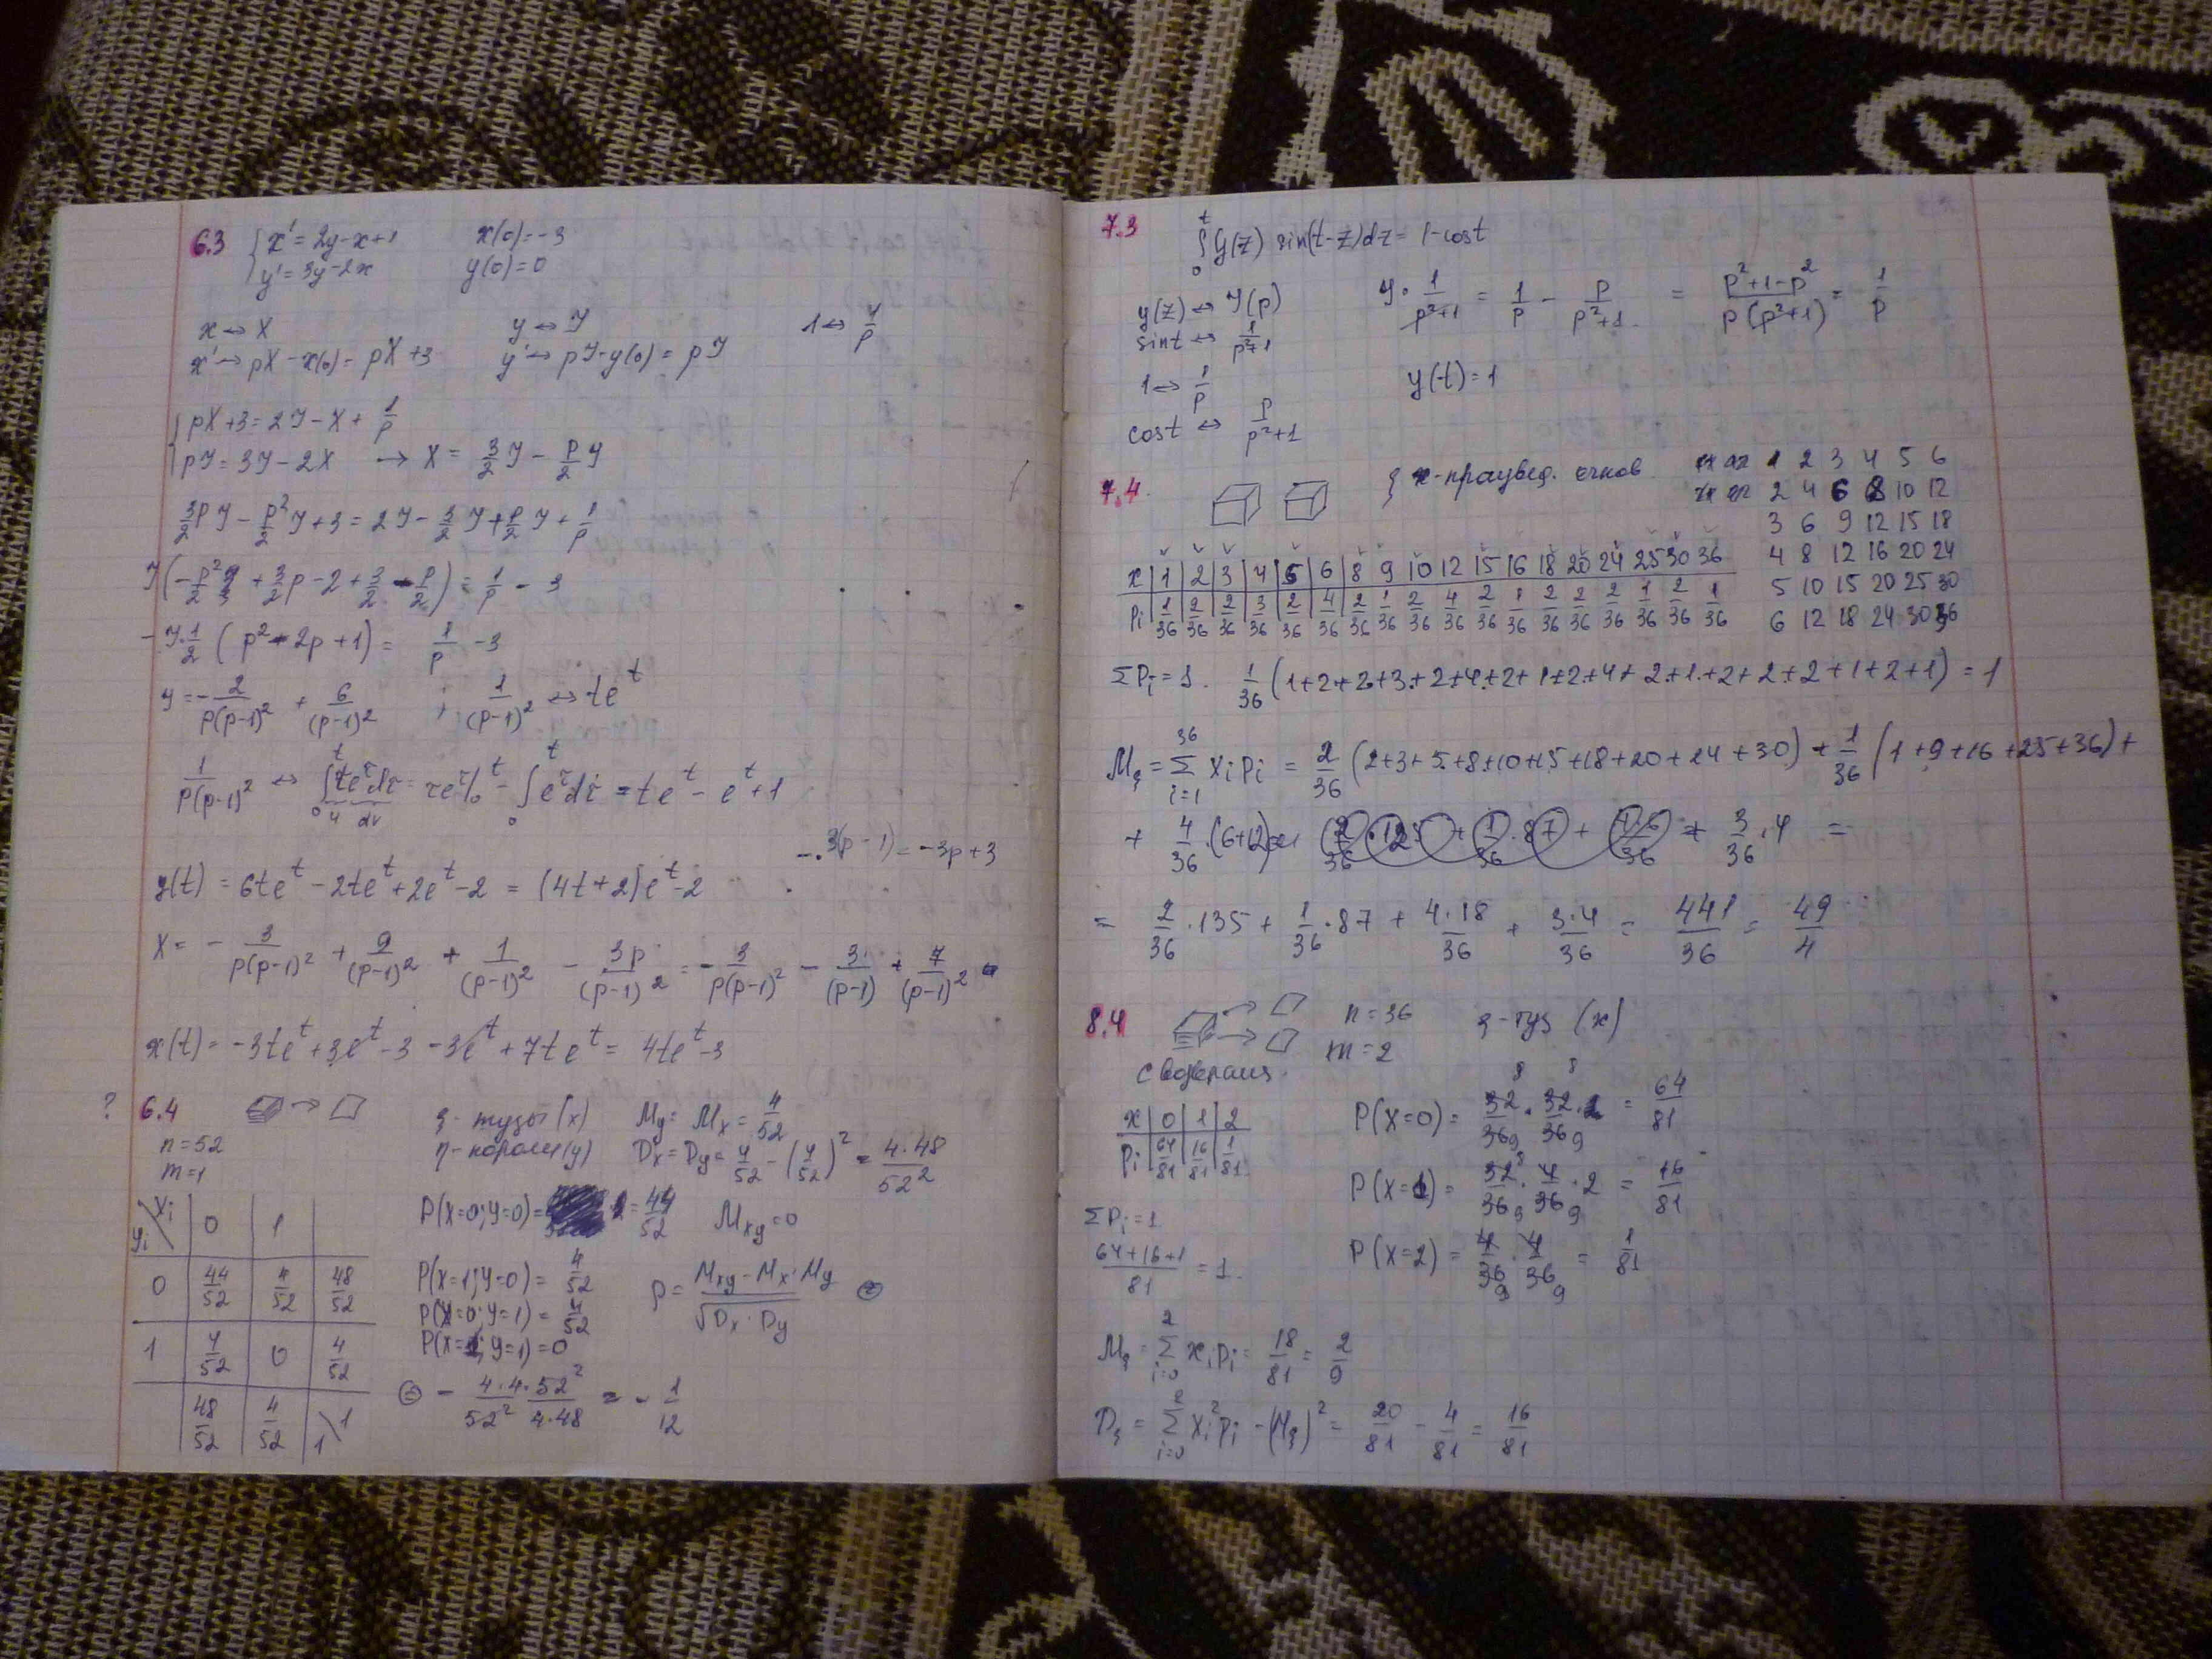 6.3 { x' = 2y-x+1 x(0)=-3
y' = 3y-2x y(0)=0
x ↔ X y ↔ Y 1 ↔ 1/p
x' → pX - x(0) = pX+3 y' → pY - y(0) = pY
{ pX+3 = 2Y - X + 1/p
pY = 3Y - 2X → X = 3/2 Y - p/2 Y
3/2 pY - p²/2 Y + 3 = 2Y - 3/2 Y + p/2 Y + 1/p
Y(-p²/2 + 3/2 p - 2 + 3/2 - p/2) = 1/p - 3
-Y·1/2 (p² - 2p + 1) = 1/p - 3
Y = -2/(p(p-1)²) + 6/(p-1)² ; 1/(p-1)² ↔ te^t
1/(p(p-1)²) ↔ ∫₀^t τe^τ dτ = τe^τ|₀^t - ∫₀^t e^τ dτ = te^t - e^t + 1
u dv
-3(p-1) = -3p+3
y(t) = 6te^t - 2te^t + 2e^t - 2 = (4t+2)e^t - 2
X = -3/(p(p-1)²) + 9/(p-1)² + 1/(p-1)² - 3p/(p-1)² = -3/(p(p-1)²) - 3/(p-1) + 7/(p-1)²
x(t) = -3te^t + 3e^t - 3 - 3e^t + 7te^t = 4te^t - 3
? 6.4 → ξ - тузы (x) My = Mx = 4/52
n=52 η - короли (y) Dx = Dy = 4/52 - (4/52)² = 4·48/52²
m=1
P(x=0; y=0) = 44/52 Mxy = 0
P(x=1; y=0) = 4/52
P(x=0; y=1) = 4/52
P(x=1; y=1) = 0
ρ = (Mxy - Mx·My)/√(Dx·Dy) ⊜
yi \ xi 0 1
0 44/52 4/52 48/52
1 4/52 0 4/52
48/52 4/52 1\1
⊜ - (4·4·52²)/(52²·4·48) = -1/12
7.3 ∫₀^t y(z) sin(t-z)dz = 1-cost
y(z) ↔ Y(p) Y·1/(p²+1) = 1/p - p/(p²+1) = (p²+1-p²)/(p(p²+1)) = 1/p
sint ↔ 1/(p²+1)
1 ↔ 1/p y(t)=1
cost ↔ p/(p²+1)
7.4. ξ x-произвед. очков
1 2 3 4 5 6
2 4 6 8 10 12
3 6 9 12 15 18
4 8 12 16 20 24
5 10 15 20 25 30
6 12 18 24 30 36
x 1 2 3 4 5 6 8 9 10 12 15 16 18 20 24 25 30 36
Pi 1/36 2/36 2/36 3/36 2/36 4/36 2/36 1/36 2/36 4/36 2/36 1/36 2/36 2/36 2/36 1/36 2/36 1/36
ΣPi = 1. 1/36 (1+2+2+3+2+4+2+1+2+4+2+1+2+2+2+1+2+1) = 1
Mξ = Σ_{i=1}^{36} xi pi = 2/36 (2+3+5+8+10+15+18+20+24+30) + 1/36 (1+9+16+25+36) +
+ 4/36·(6+12) + 3/36·4 =
= 2/36·135 + 1/36·87 + 4·18/36 + 3·4/36 = 441/36 = 49/4
8.4 n=36 ξ-туз (x)
m=2
с возвращ.
x 0 1 2
Pi 64/81 16/81 1/81
P(x=0) = 32/36·32/36 = 64/81
P(x=1) = 32/36·4/36·2 = 16/81
P(x=2) = 4/36·4/36 = 1/81
ΣPi = 1
(64+16+1)/81 = 1.
Mξ = Σ_{i=0}^{2} xi pi = 18/81 = 2/9
Dξ = Σ_{i=0}^{2} xi² pi - (Mξ)² = 20/81 - 4/81 = 16/81